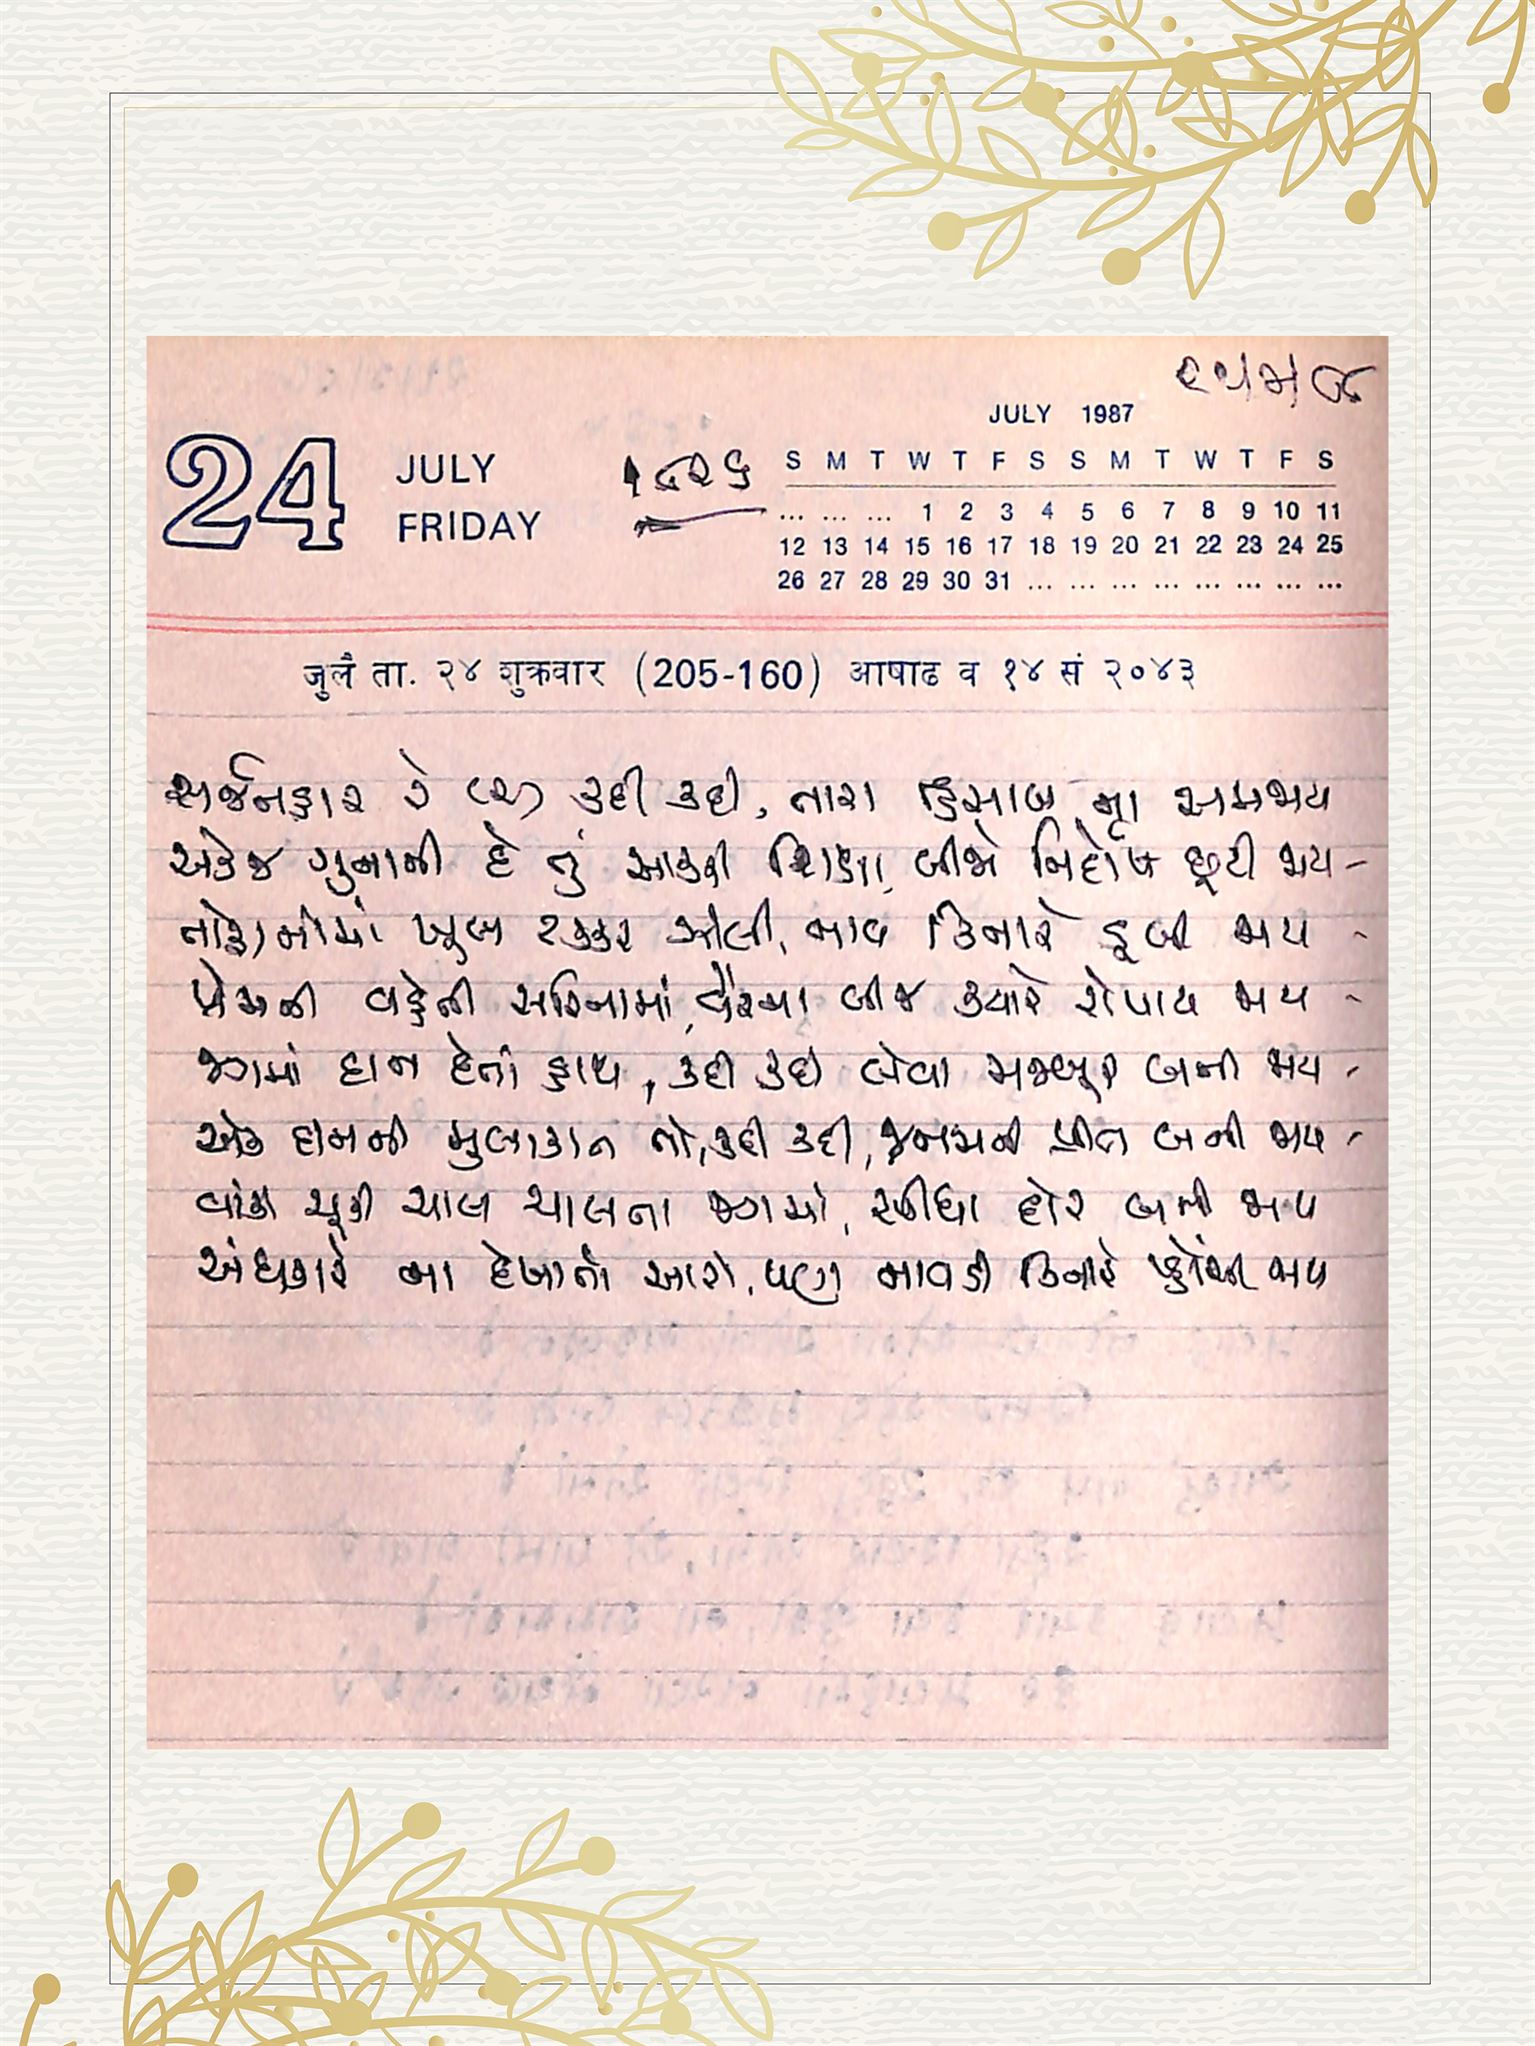 JULY 1987
24 JULY
FRIDAY
૧૮૨૬
S M T W T F S S M T W T F S
... ... ... 1 2 3 4 5 6 7 8 9 10 11
12 13 14 15 16 17 18 19 20 21 22 23 24 25
26 27 28 29 30 31 ... ... ... ... ... ... ... ...
जुलै ता. २४ शुक्रवार (205-160) आषाढ व १४ सं २०४३
સર્જનહાર રે (૨) કદી કદી, તારા હિસાબ ના સમજાય
એકજ ગુનાની દે તું આકરી શિક્ષા, બીજો નિર્દોષ છૂટી જાય -
તોફાનોમાં ખૂબ ટક્કર ઝીલી, નાવ કિનારે ડૂબી જાય -
પ્રેમની વહેતી સરિતામાં, વૈરના બીજ ક્યારે રોપાય જાય -
જગમાં દાન દેતાં હાથ, કદી કદી લેવા મજબૂર બની જાય -
એક દાનની મુલાકાત તો, કદી કદી, જનમની પ્રીત બની જાય -
વાંકી ચૂકી ચાલ ચાલતા જગમાં, સીધા દોર બની જાય
અંધકારે ના દેખાતો આરો, પણ નાવડી કિનારે પ્હોંચી જાય